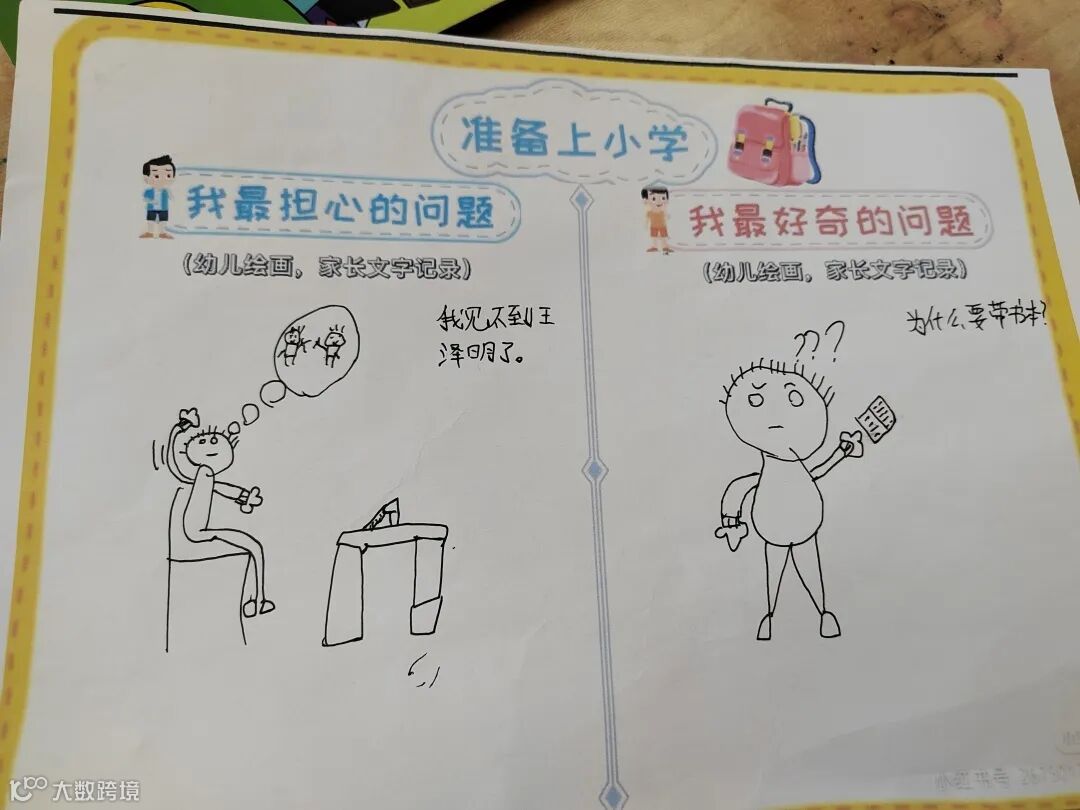 准备上小学
我最担心的问题
(幼儿绘画，家长文字记录)
我见不到王
泽明了。
我最好奇的问题
(幼儿绘画，家长文字记录)
为什么要带书本?
???
大数跨境